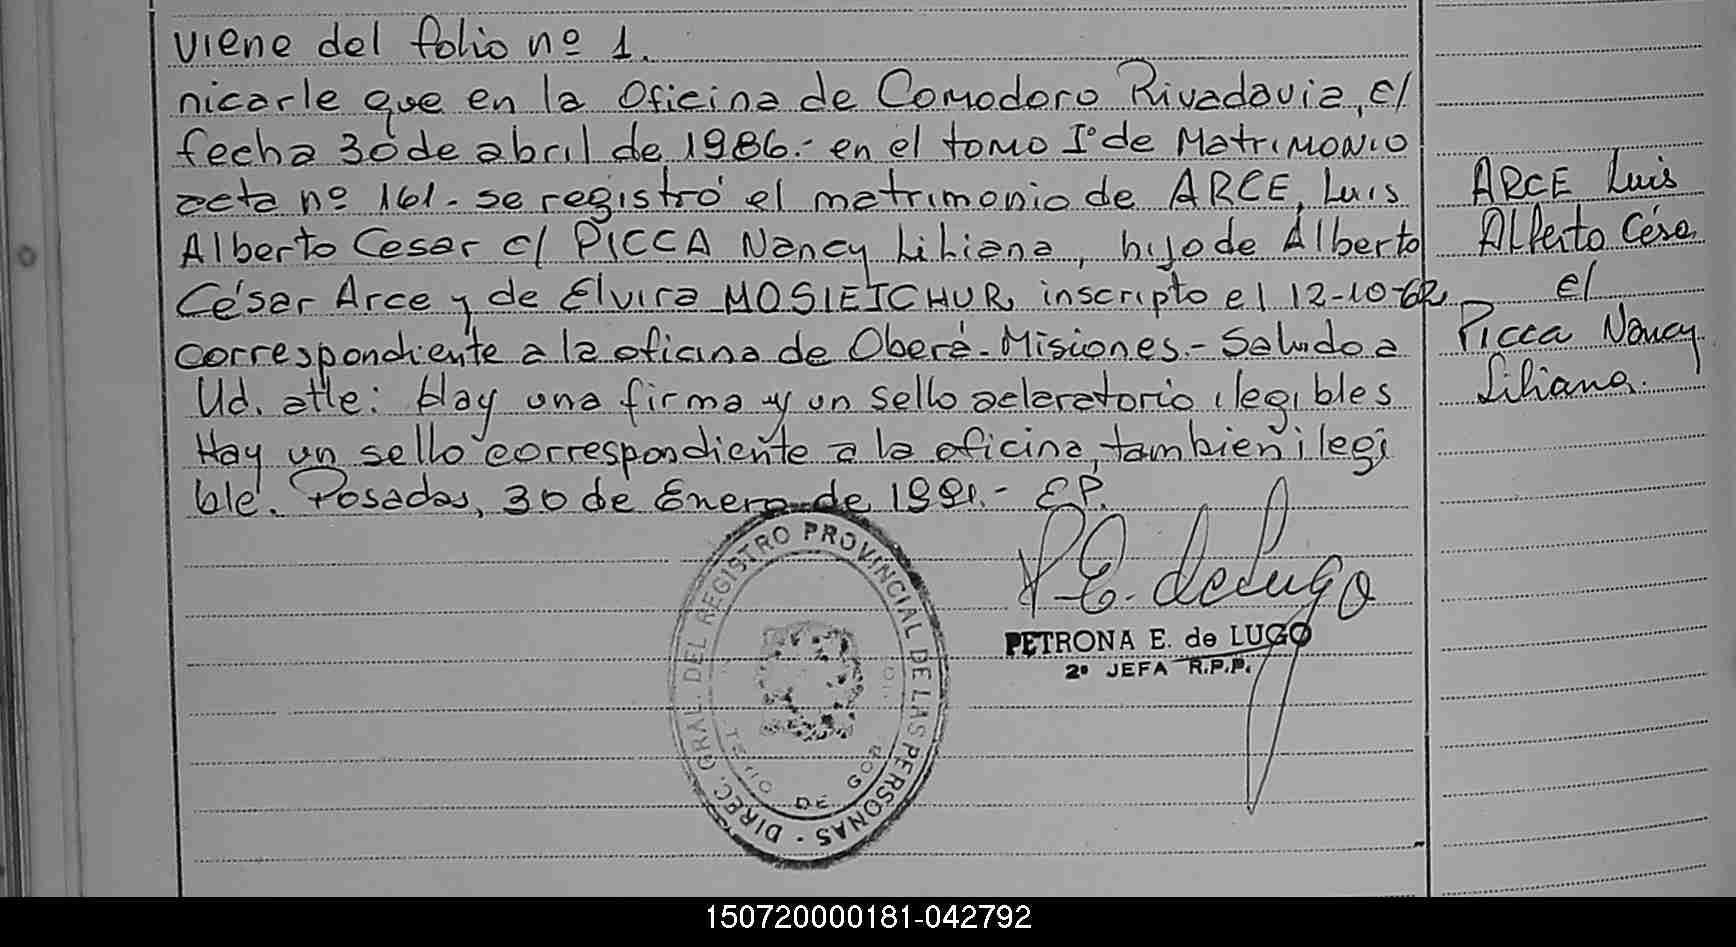 viene del folio nº 1.
nicarle que en la Oficina de Comodoro Rivadavia, el
fecha 30 de abril de 1986.- en el tomo Iº de Matrimonio
acta nº 161.- se registró el matrimonio de ARCE, Luis
Alberto Cesar c/ PICCA Nancy Liliana, hijo de Alberto
César Arce y de Elvira MOSIEJCHUR, inscripto el 12-10-62,
correspondiente a la oficina de Oberá-Misiones.- Saludo a
Ud. atte: Hay una firma y un sello aclaratorio ilegibles
Hay un sello correspondiente a la oficina, tambien ilegi
ble. Posadas, 30 de Enero de 1991.- EP.
ARCE Luis
Alberto Césa
el
Picca Nancy
Liliana.
P. E. de Lugo
PETRONA E. de LUGO
2º JEFA R.P.P.
DIREC. GRAL. DEL REGISTRO PROVINCIAL DE LAS PERSONAS -
DE GOB
150720000181-042792